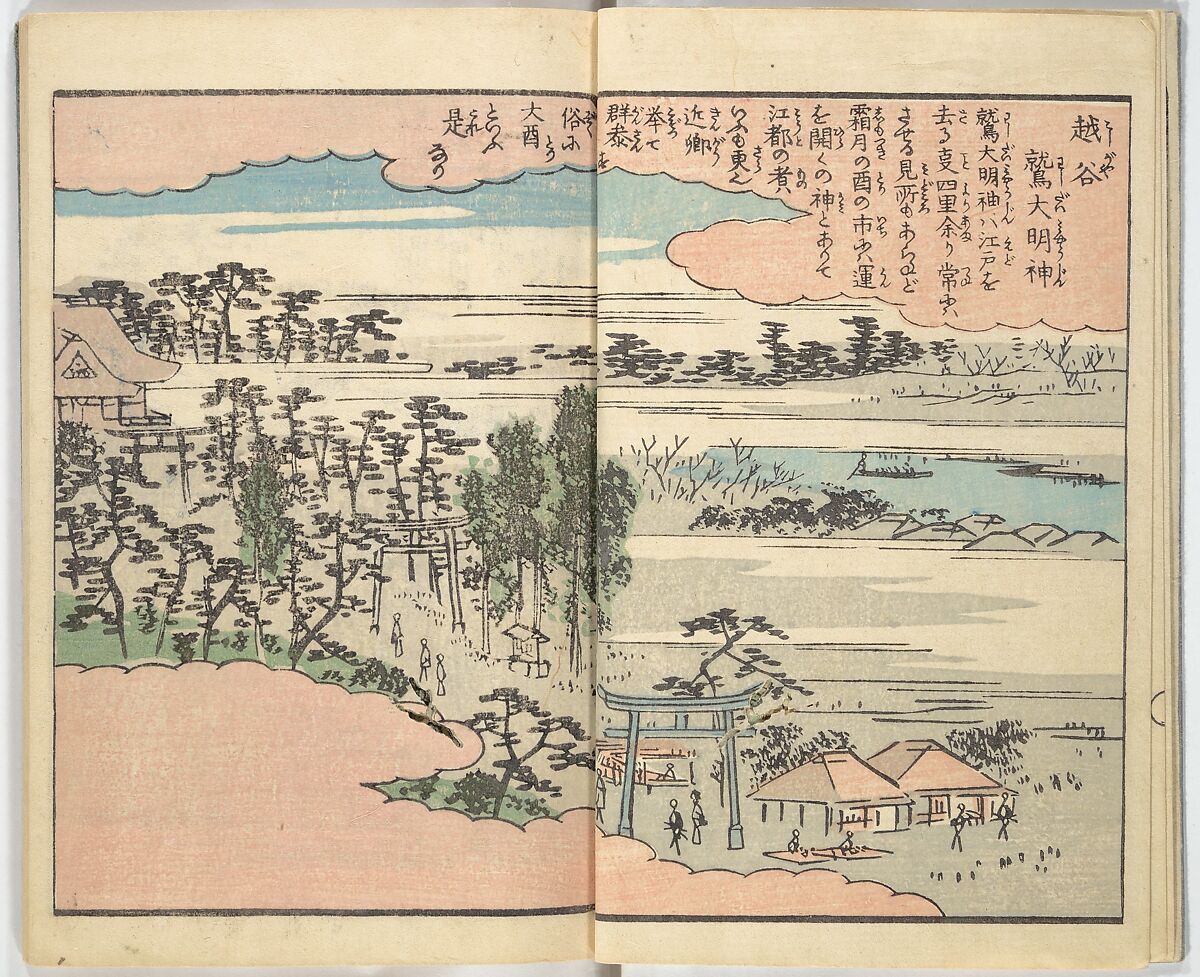 越谷
鷲大明神
鷲大明神ハ江戸を
去る支四里余り常にハ
させる見所もあらねど
霜月の酉の市にハ運
を開くの神とありて
江都の者ハ
いふも更也
近郷
挙て
群参す
俗に
大酉
といふ
是
なり